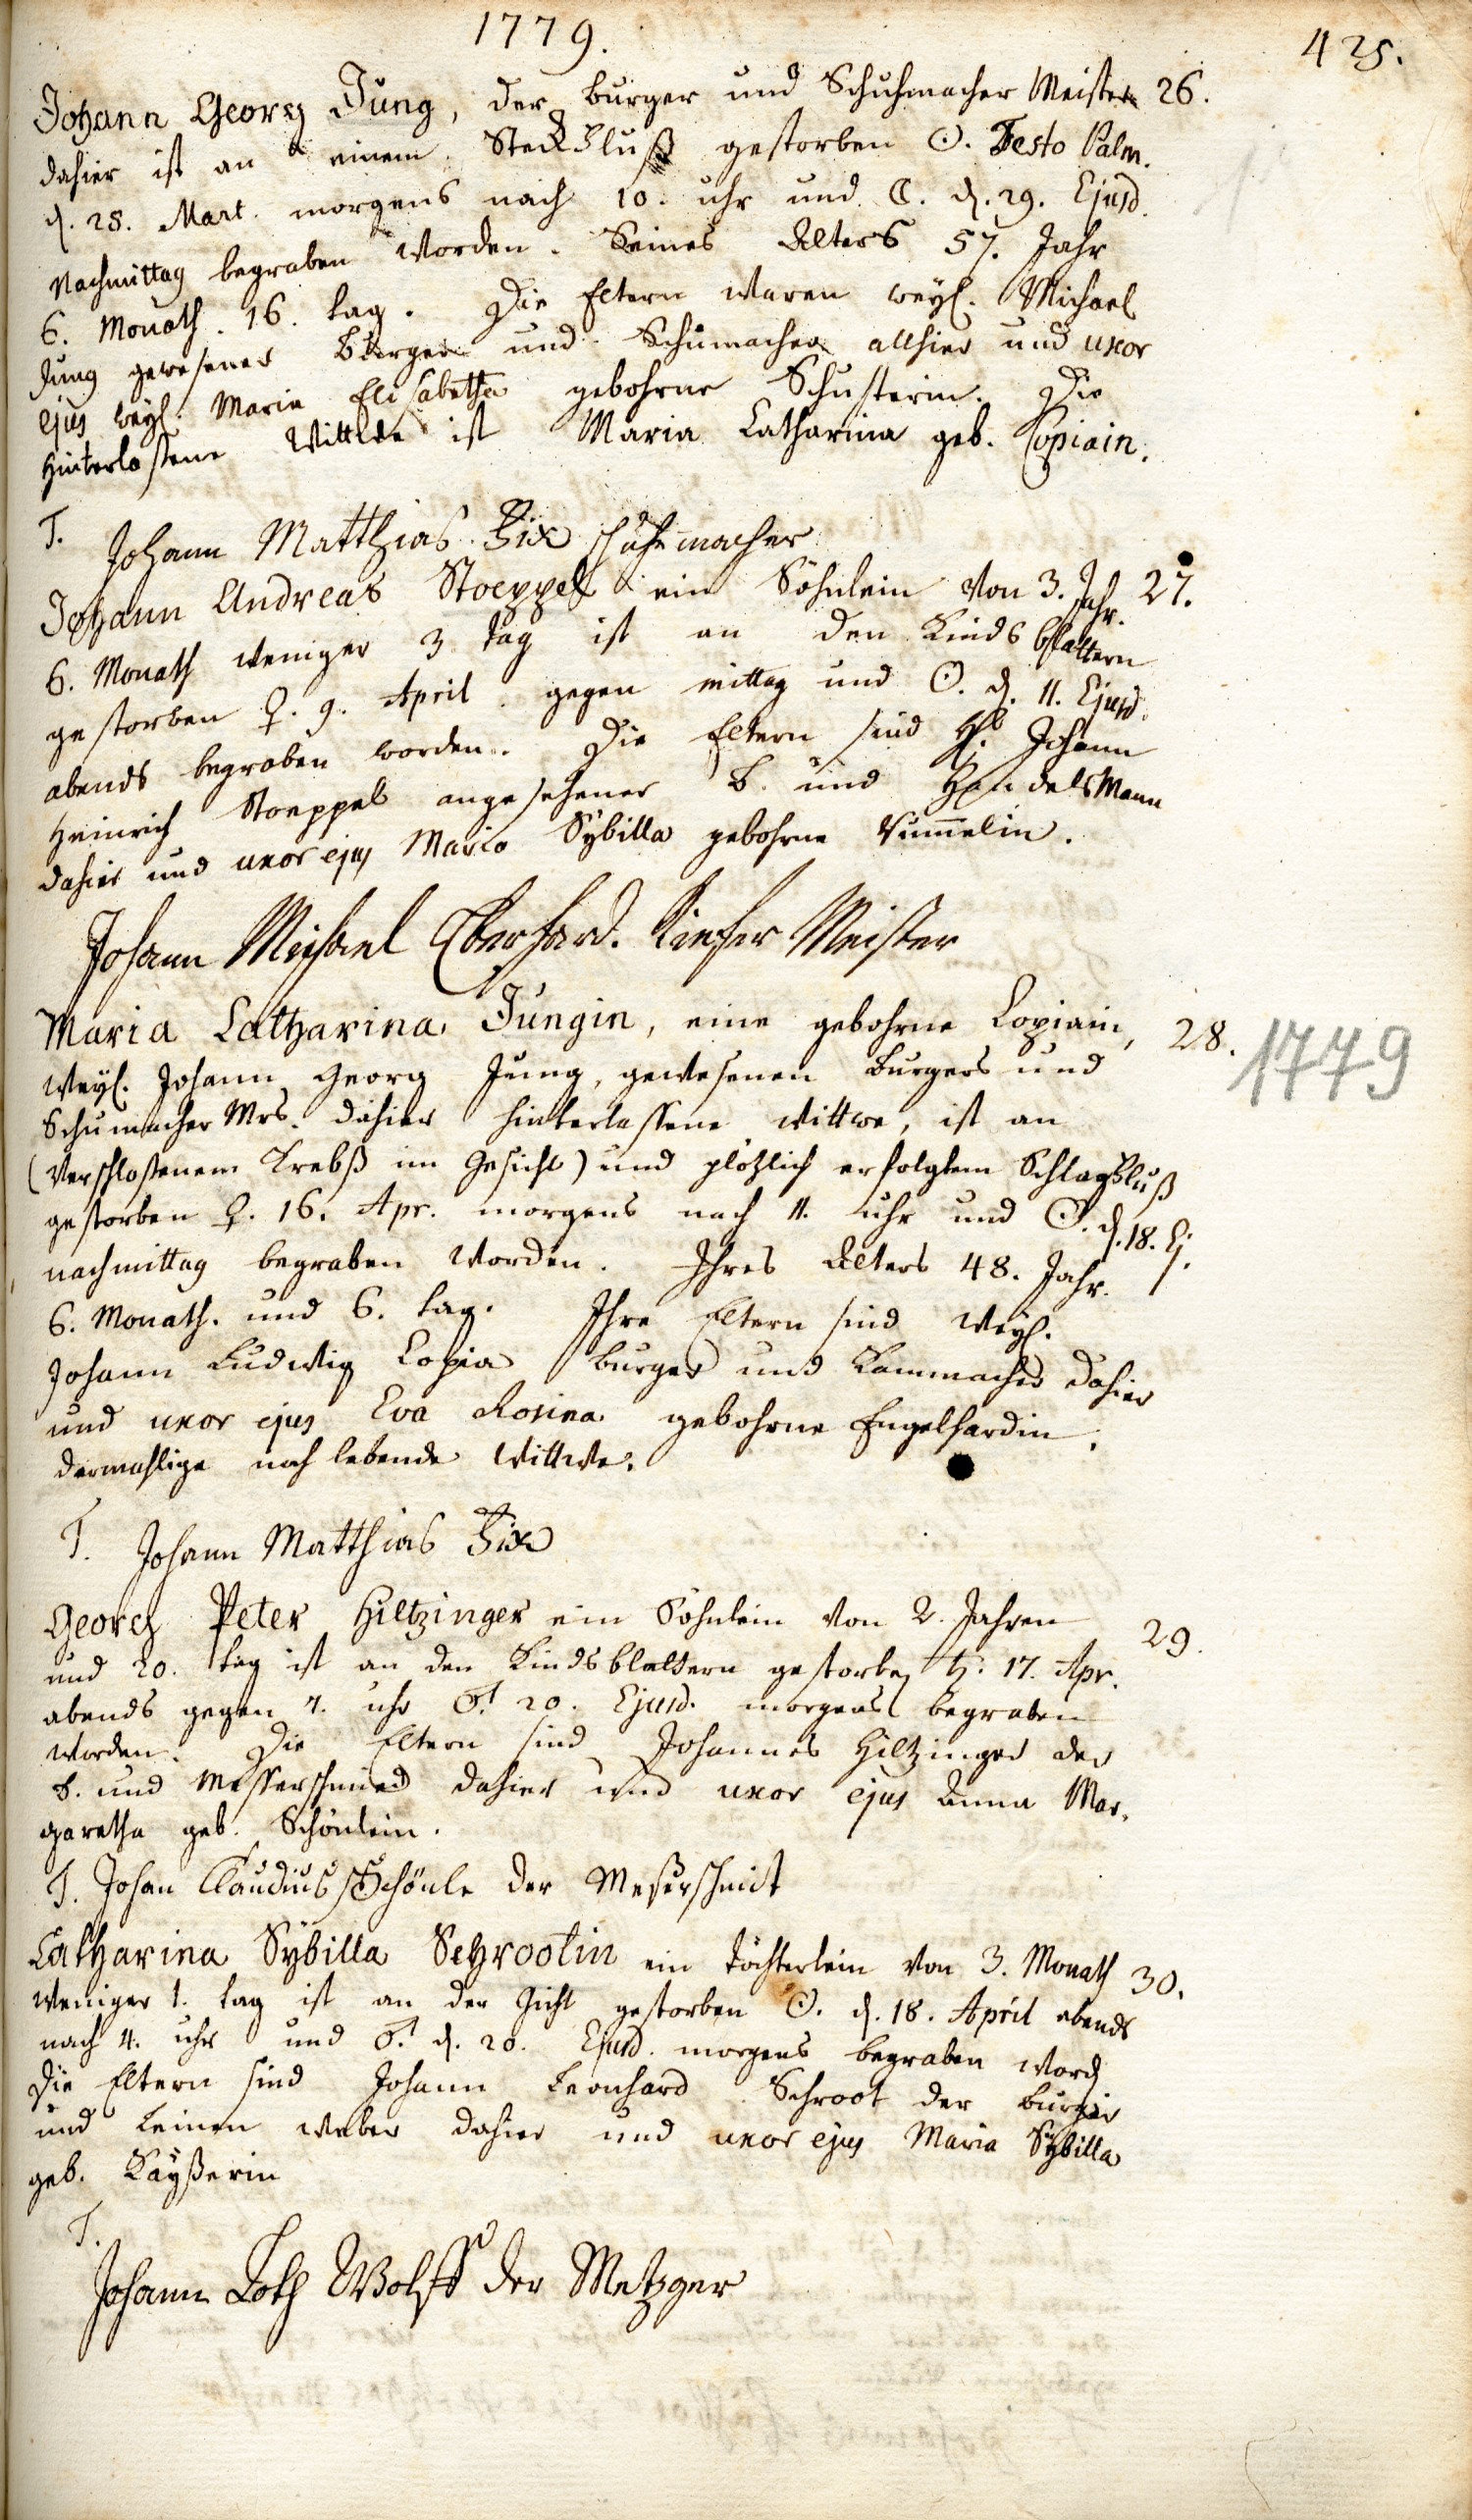 1779.
425.
Johann Georg Jung, der burger und Schuhmacher Meister 26.
dahier ist an einem Steckfluß gestorben ☉. Festo Palm.
d. 28. Mart. morgens nach 10. uhr und ☾. d. 29. Ejusd.
Nachmittag begraben worden. Seines Alters 57. Jahr
6. Monath. 16. tag. Die Eltern waren weyl. Michael
Jung gewesener Burger und Schumacher allhier und uxor
ejus weyl. Maria Elisabetha gebohrne Schusterin. Die
hinterlaßene Wittwe ist Maria Catharina geb. Copiain.
T. Johann Matthias Fix schuhmacher
Johann Andreas Stoeppel ein Söhnlein von 3. Jahr. 27.
6. Monath weniger 3 tag ist an den Kindsblattern
gestorben ♀. 9. April. gegen mittag und ☉. d. 11. Ejusd.
abends begraben worden. Die Eltern sind H. Johann
Heinrich Stoeppel angesehener b. und Handelsmann
dahier und uxor ejus Maria Sybilla gebohrne
Johann Michael Eberhard. Kiefer Meister
Maria Catharina Jungin, eine gebohrne Copiain, 28.
1779
weyl. Johann Georg Jung, gewesenen burgers und
Schumacher Mrs. dahier hinterlassene wittwe, ist an
(verschloßenem Krebß im Gesicht) und plötzlich erfolgtem Schlagfluß
gestorben ♀. 16. Apr. morgens nach 11. uhr und ☉. d. 18. Ej.
nachmittag begraben worden. Ihres Alters 48. Jahr.
6. Monath. und 6. tag. Ihre Eltern sind weyl.
Johann Ludwig Copia burger und Kammacher dahier
und uxor ejus Eva Rosina gebohrne Engelhardin,
dermahlige noch lebende Wittwe.
T. Johann Matthias Fix
Georg Peter Hiltzinger ein Söhnlein von 2. Jahren 29.
und 20. tag ist an den Kindsblattern gestorben ♄. 17. Apr.
abends gegen 7. uhr ♂. 20. Ejusd. morgens begraben
worden. Die Eltern sind Johannes Hiltzinger der
b. und Messerschmied dahier und uxor ejus Anna Mar-
garetha geb. Schönlein.
T. Johan Claudius Schönle der Meßerschmidt
Catharina Sybilla Schrootin ein töchterlein von 3. Monath 30.
weniger 1. tag ist an der Gicht gestorben ☉. d. 18. April abends
nach 4. uhr und ♂. d. 20. Ejusd. morgens begraben word
die Eltern sind Johann Leonhard Schroot der burger
und Leinen weber dahier und uxor ejus Maria Sybilla
geb. Kayßerin
T.
Johann Loth Wolff der Metzger